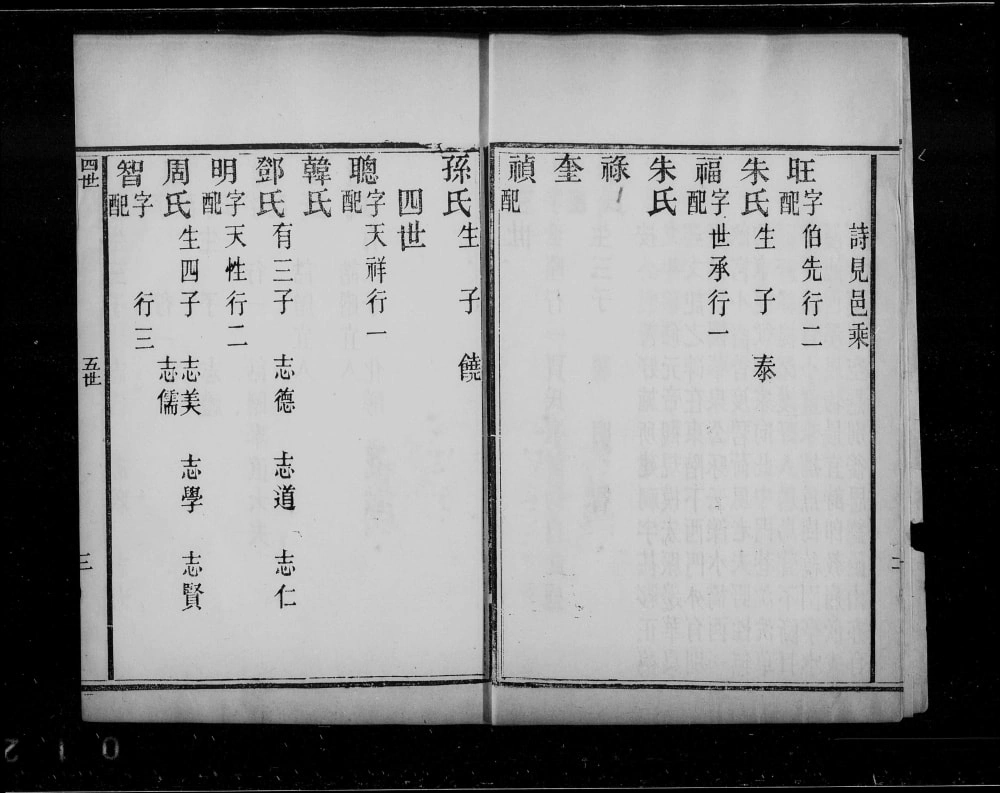 詩見邑乘
旺字伯先行二
配
朱氏生子泰
福字世承行一
配
朱氏
祿
奎
禎配
孫氏生子饒
四世
聰字天祥行一
配
韓氏
鄧氏有三子 志德 志道 志仁
明字天性行二
配
周氏生四子 志美 志學 志賢
志儒
智字 行三
配
四世 五世 三